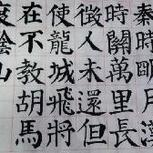 秦時明月漢
時關萬里長
徵人未還但
使龍城飛將
在不教胡馬
度陰山